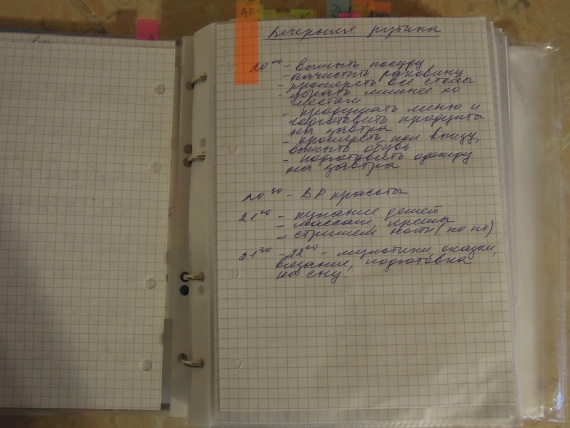 Вечерняя рутина
20⁰⁰ - вымыть посуду
- начистить раковину
- протереть все столы
- убрать лишнее по
местам
- продумать меню и
подготовить продукты
на завтра
- протереть пол внизу,
вымыть обувь
- подготовить одежду
на завтра
20³⁰ - ВР красоты
21⁰⁰ - купание детей
- массаж, кремы
- стрижем ногти (по пт)
21³⁰ - 22⁰⁰ - мультики, сказки,
вязание, подготовка
ко сну.